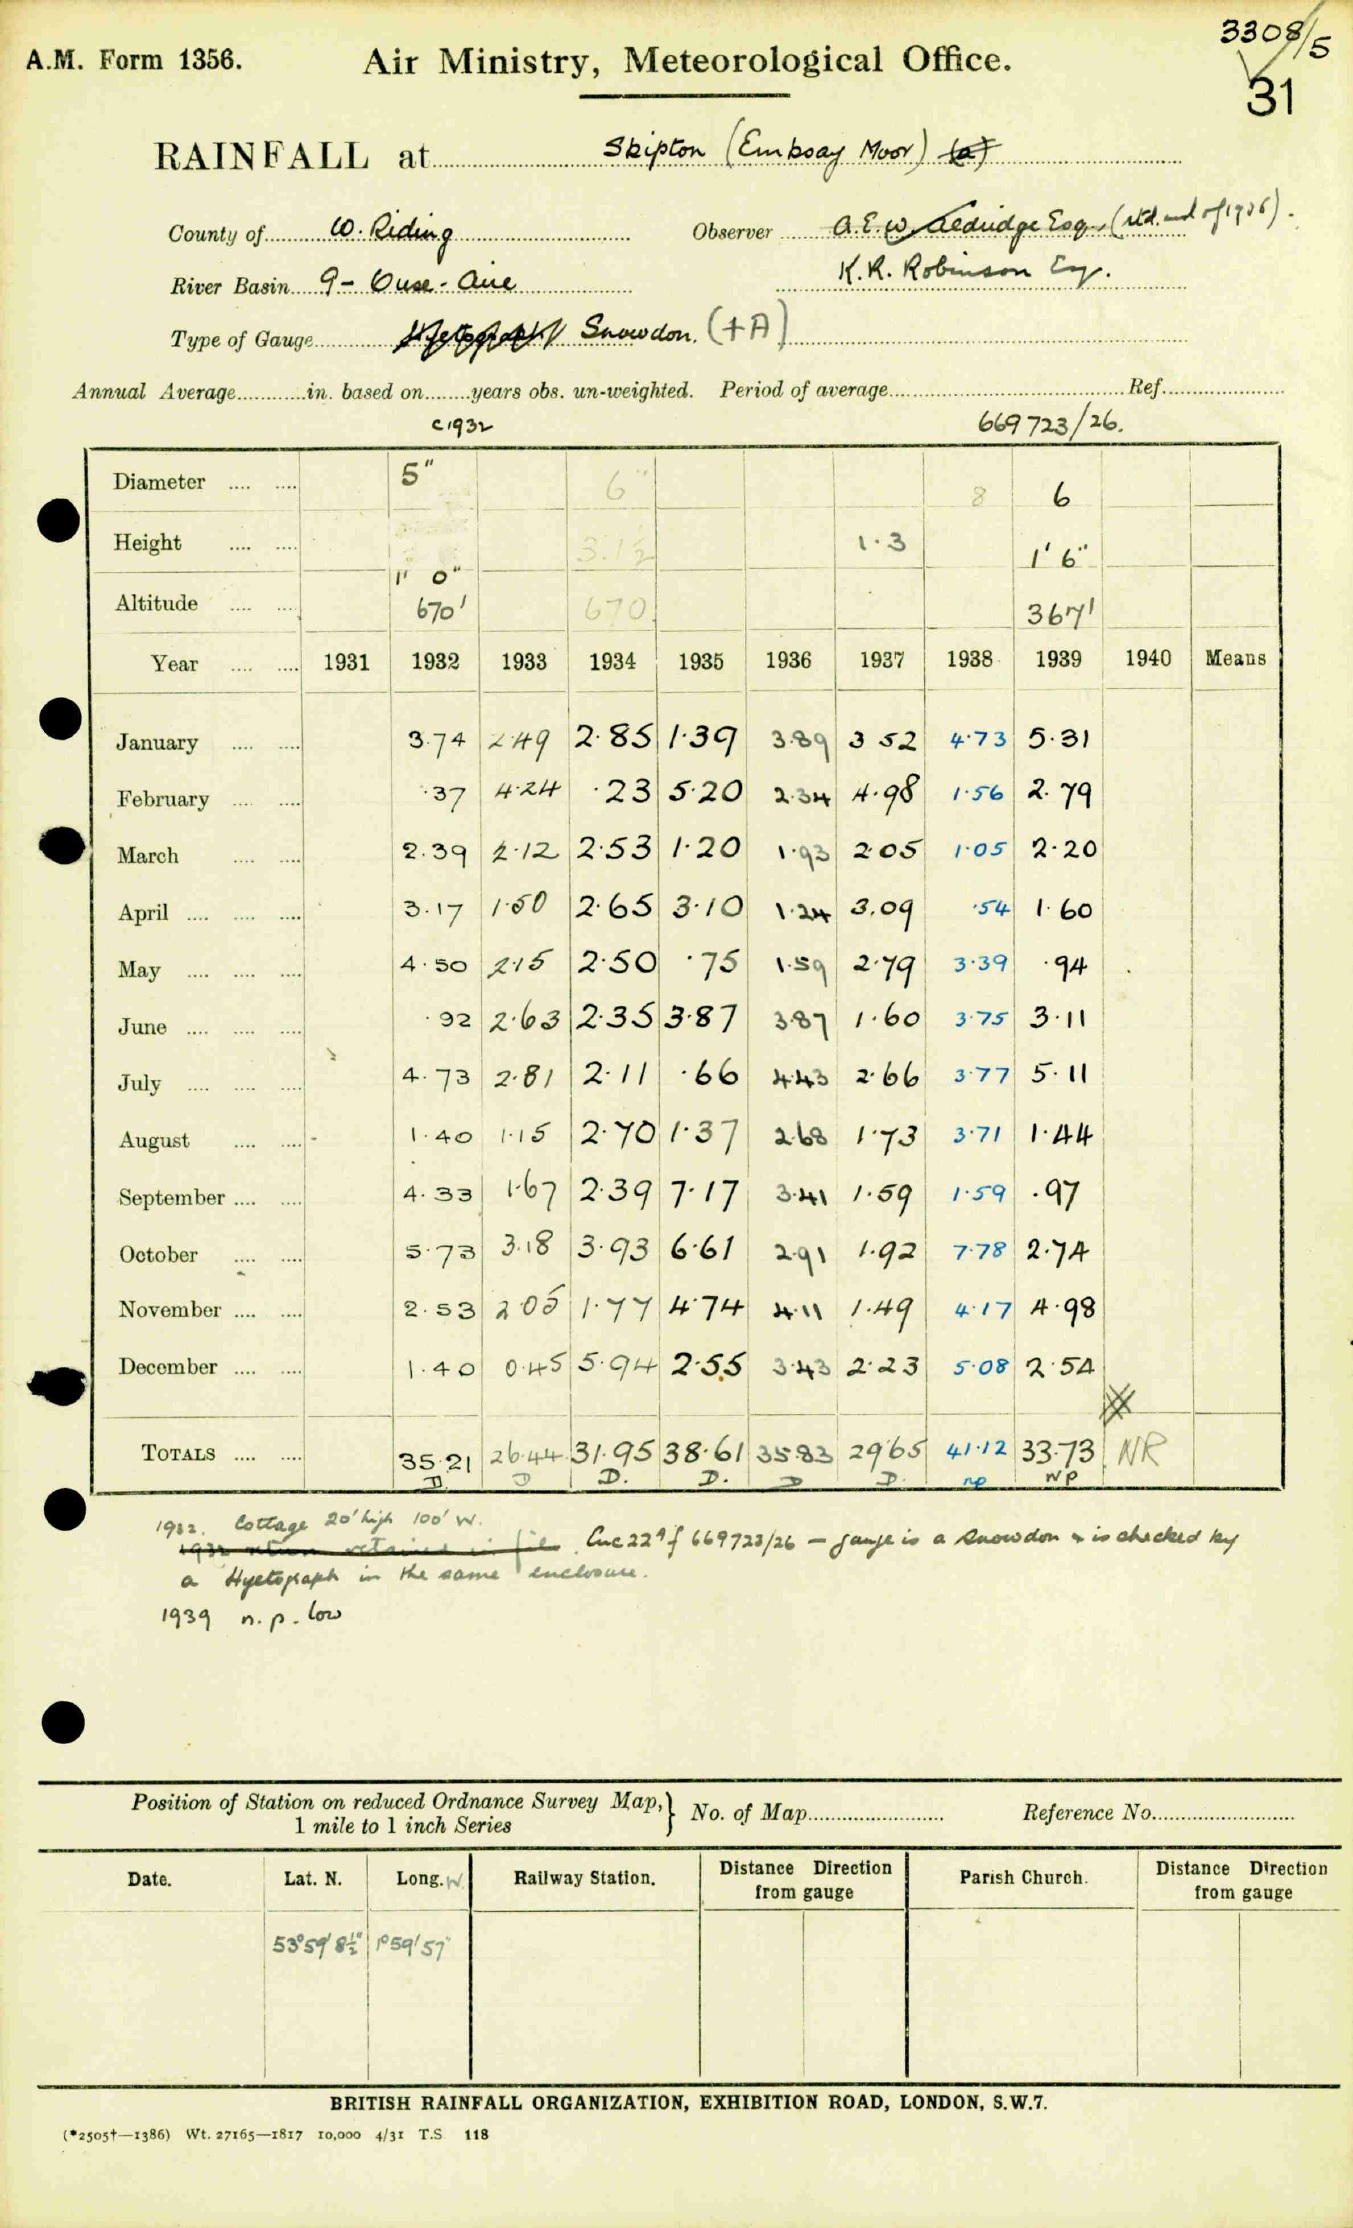 3308/5
A.M. Form 1356. Air Ministry, Meteorological Office. 31
RAINFALL at Skipton (Embsay Moor) (a)
County of W. Riding Observer A.E.W. Aldridge Esq. (rtd. end of 1936).
River Basin 9 - Ouse - Aire K.R. Robinson Esq.
Type of Gauge Hyetograph Snowdon. (+A)
Annual Average in. based on years obs. un-weighted. Period of average Ref.
c1932 669723/26.
Diameter 5" 6" 8 6
Height 1' 0" 3.1½ 1·3 1' 6"
Altitude 670' 670 367'
Year 1931 1932 1933 1934 1935 1936 1937 1938 1939 1940 Means
January 3.74 2.49 2.85 1.39 3.89 3 52 4.73 5.31
February .37 4.24 .23 5.20 2.34 4.98 1.56 2.79
March 2.39 2.12 2.53 1.20 1.93 2.05 1.05 2.20
April 3.17 1.50 2.65 3.10 1.24 3.09 .54 1.60
May 4.50 2.15 2.50 .75 1.59 2.79 3.39 .94
June .92 2.63 2.35 3.87 3.87 1.60 3.75 3.11
July 4.73 2.81 2.11 .66 4.43 2.66 3.77 5.11
August 1.40 1.15 2.70 1.37 2.68 1.73 3.71 1.44
September 4.33 1.67 2.39 7.17 3.41 1.59 1.59 .97
October 5.73 3.18 3.93 6.61 2.91 1.92 7.78 2.74
November 2.53 2.05 1.77 4.74 4.11 1.49 4.17 4.98
December 1.40 0.45 5.94 2.55 3.43 2.23 5.08 2.54
TOTALS 35.21 26.44 31.95 38.61 35.83 29.65 41.12 33.73 NR
D D D. D. D D. np NP
1932. Cottage 20' high 100' W.
1932 return retained in file Enc 22A of 669723/26 — gauge is a Snowdon & is checked by
a Hyetograph in the same enclosure.
1939 n.p. low
Position of Station on reduced Ordnance Survey Map, 1 mile to 1 inch Series } No. of Map Reference No.
Date. Lat. N. Long. W Railway Station. Distance Direction from gauge Parish Church. Distance Direction from gauge
53°59' 8½" 1°59'57"
BRITISH RAINFALL ORGANIZATION, EXHIBITION ROAD, LONDON, S.W.7.
(*2505†—1386) Wt. 27165—1817 10,000 4/31 T.S 118